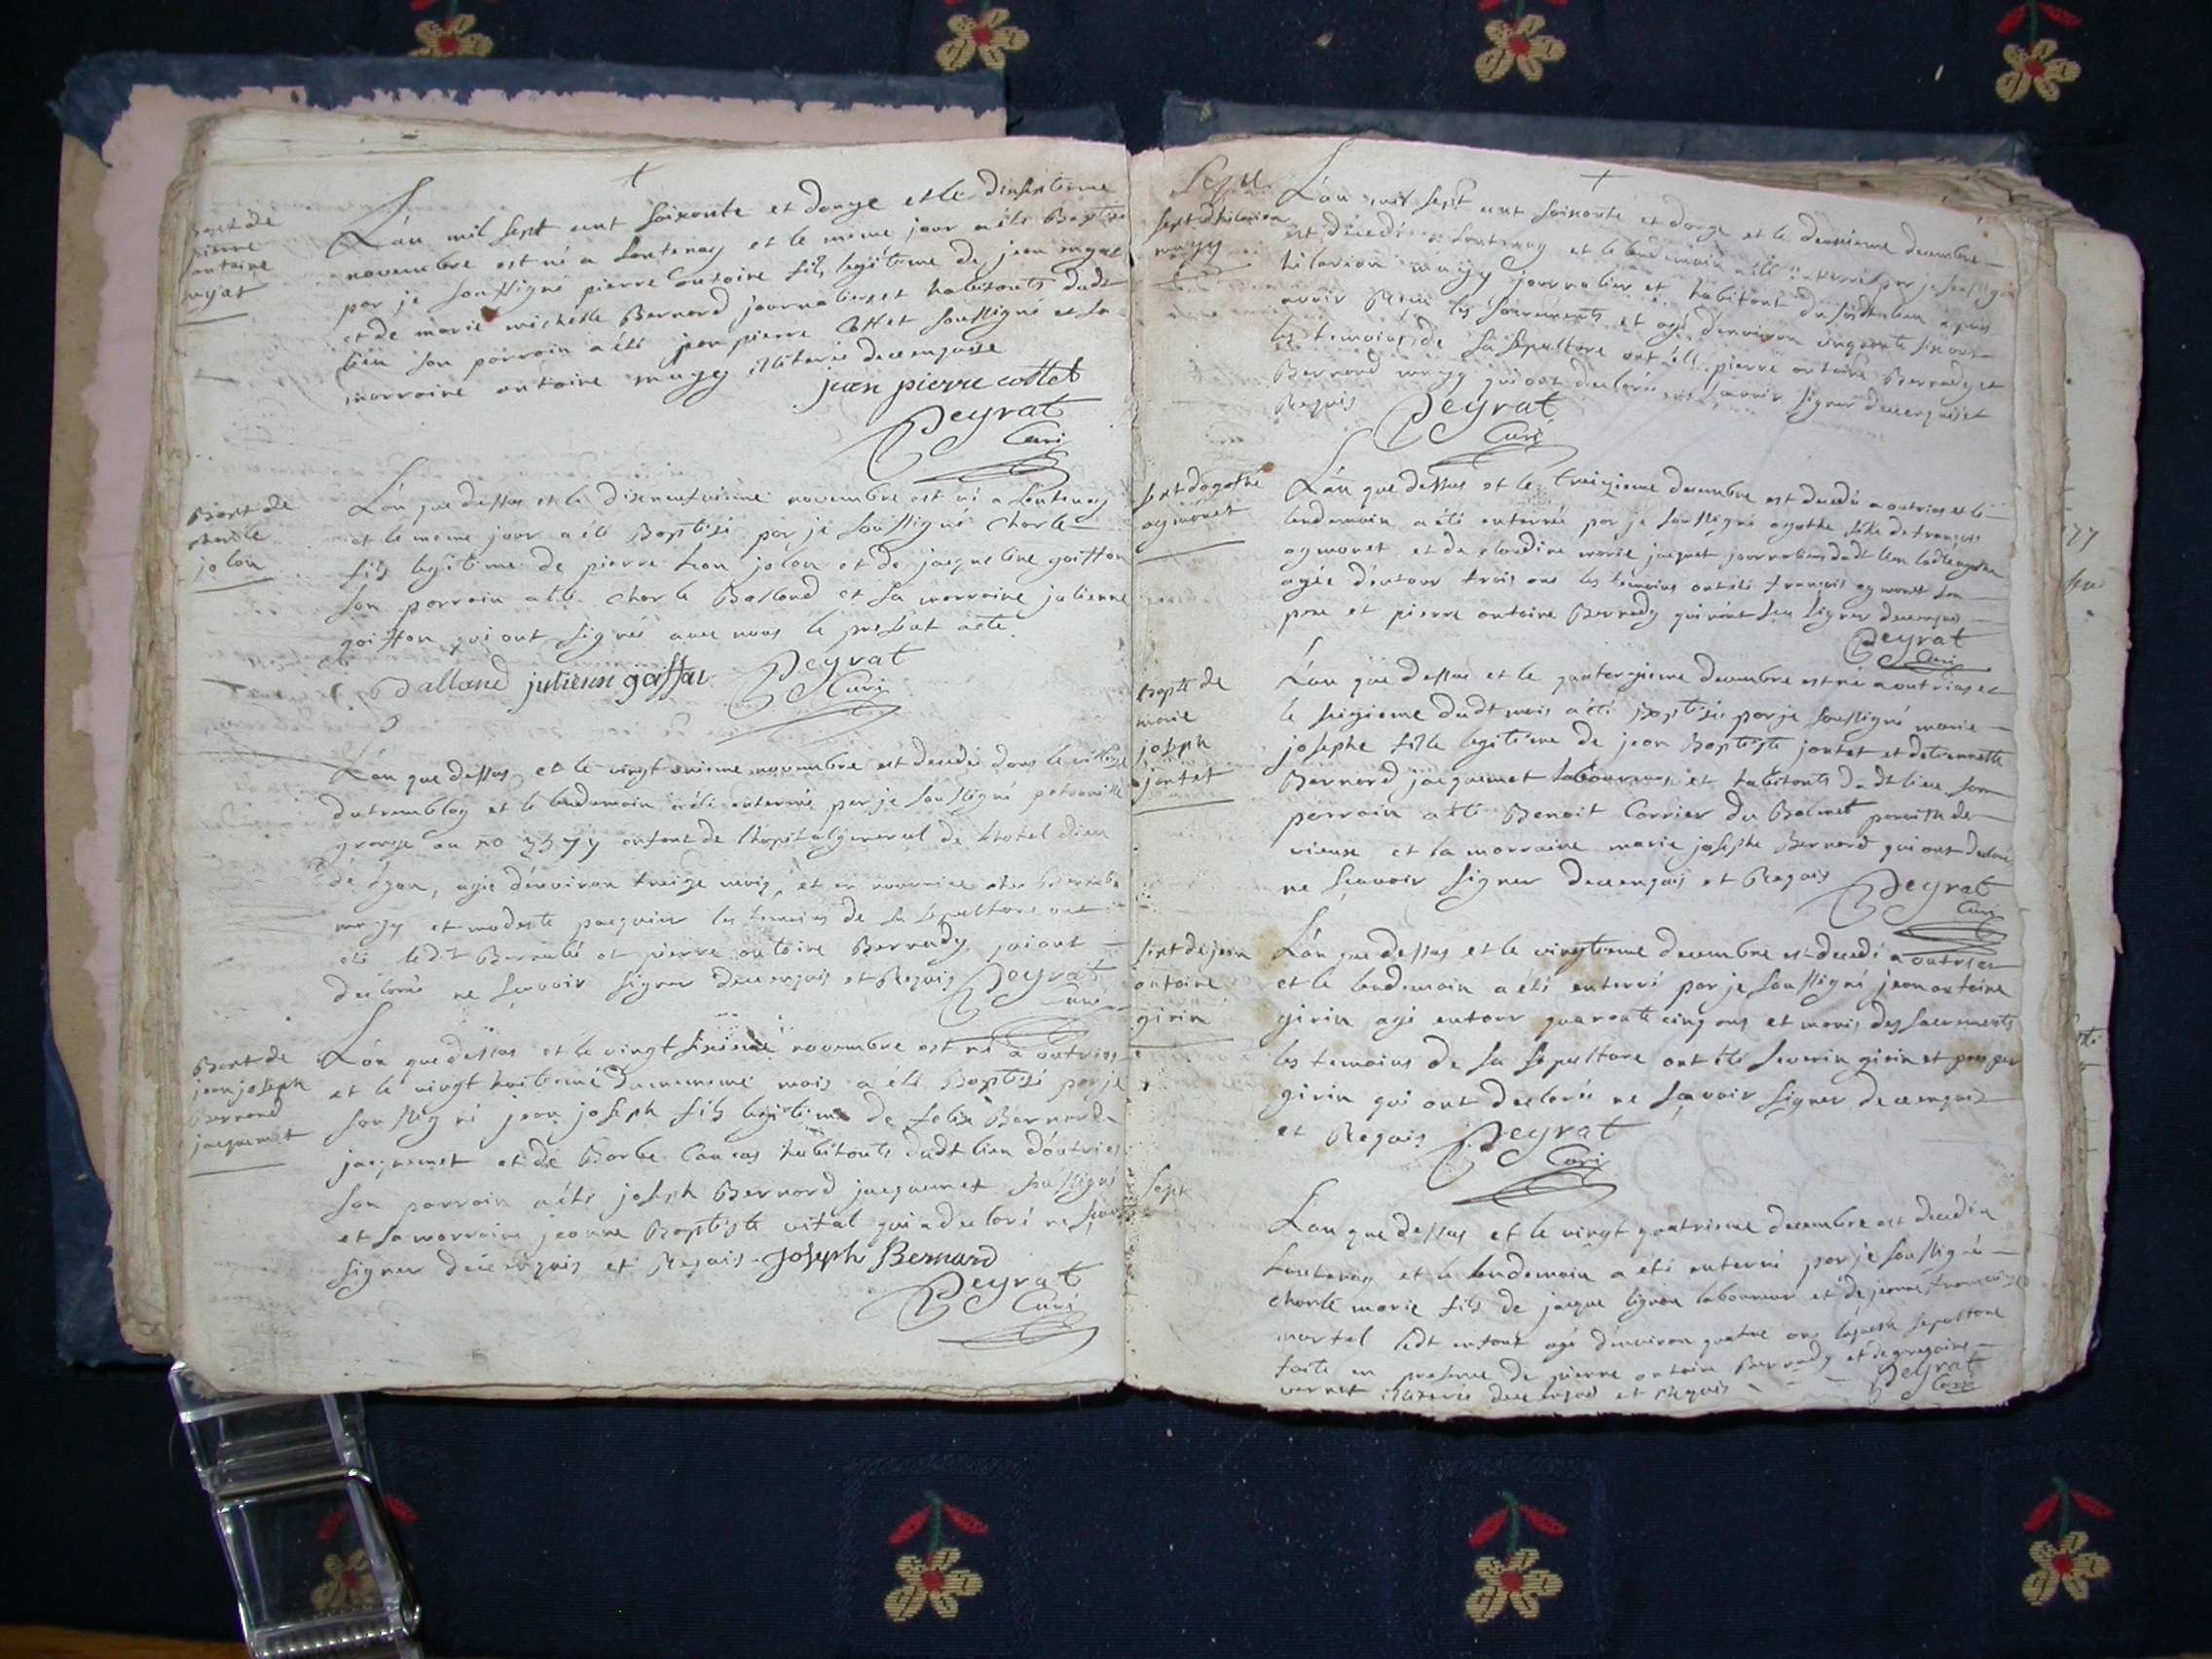 +
Bapt de
pierre
antoine
mygat
L'an mil sept cent soixante et douze et le dixseptieme
novembre est né a Lentenay et le meme jour a été Baptisé
par je soussigné pierre antoine fils legitime de jean mygat
et de marie michelle Bernard journaliers et habitants dudt
lieu son parrain a été jean pierre Cottet soussigné et sa
marraine antoine illiterée de ce enquise
jean pierre cottet
Peyrat
Curé
Bapt de
charle
jolon
L'an que dessus et le dixneufvieme novembre est né a Lentenay
et le meme jour a été Baptisé par je soussigné charle
fils legitime de pierre jolon et de jacqueline goiffon
son parrain a été charle Balland et sa marraine julienne
goiffon qui ont signés avec nous le present acte
C Balland julienne goiffon Peyrat
Curé
L'an que dessus et le vingt novembre est decedée dans le village
du tremblay et le lendemain a été enterrée par je soussigné
au no enfant de l'hopital general de l'hotel dieu
de Lyon, agée d'environ treize mois, et en nourrice chez
et modeste les temoins de sa sepulture ont
été ledt Barnabé et pierre antoine Bernardy qui ont
declarés ne sçavoir signer de ce enquis et Requis Peyrat
Curé
Bapt de
jean joseph
Bernard
jacquemet
L'an que dessus et le vingt sixieme novembre est né a outriaz
et le vingt huitieme du meme mois a été Baptisé par je
soussigné jean joseph fils legitime de felix Bernard
jacquemet et de Barbe habitants dudt lieu d'outriaz
son parrain a été joseph Bernard jacquemet soussigné
et sa marraine jeanne Baptiste vital qui a declaré ne sçavoir
signer de ce enquis et Requis Joseph Bernard
Peyrat
Curé
+
Sept d'hilarion
L'an mil sept cent soixante et douze et le deuxieme decembre
est decedé a Lentenay et le lendemain a été enterré par je soussigné
hilarion journalier et habitant du susdit lieu apres
avoir Reçu les sacrements et agé d'environ cinquante six ans
les temoins de sa sepulture ont été pierre antoine Bernardy et
Bernard qui ont declarés ne sçavoir signer de ce enquis et
Requis Peyrat
Curé
Sept d'agathe
aymonet
L'an que dessus et le treizieme decembre est decedée a outriaz et le
lendemain a été enterrée par je soussigné agathe fille de françois
aymonet et de claudine marie jacquet journaliers dudt lieu
agée d'entour trois ans les temoins ont été françois aymonet son
pere et pierre antoine Bernardy qui n'ont sçu signer de ce enquis
Peyrat
Curé
Bapte de
marie
joseph
jantet
L'an que dessus et le quatorzieme decembre est née a outriaz et
le seizieme dudt mois a été Baptisée par je soussigné marie
josephe fille legitime de jean Baptiste jantet et d'etiennette
Bernard jacquemet laboureurs et habitants dudt lieu son
parrain a été Benoit Carrier du Balmet paroisse de
vieuse et la marraine marie josephe Bernard qui ont declaré
ne sçavoir signer de ce enquis et Requis Peyrat
Curé
Sept de jean
antoine
girin
L'an que dessus et le vingtieme decembre est decedé a outriaz
et le lendemain a été enterré par je soussigné jean antoine
girin agé entour quarante cinq ans et munis des sacrements
les temoins de sa sepulture ont été severin girin et prosper
girin qui ont declarés ne sçavoir signer de ce enquis
et Requis Peyrat
Curé
Sept
L'an que dessus et le vingt quatrieme decembre est decedé a
Lantenay et le lendemain a été enterré par je soussigné
charle marie fils de jacque laboureur et de jeanne françoise
martel ledt enfant agé d'environ quatre ans sepulture
faite en presence de pierre antoine Bernardy et de gregoire
vernet illiterés de ce enquis et Requis Peyrat
Curé